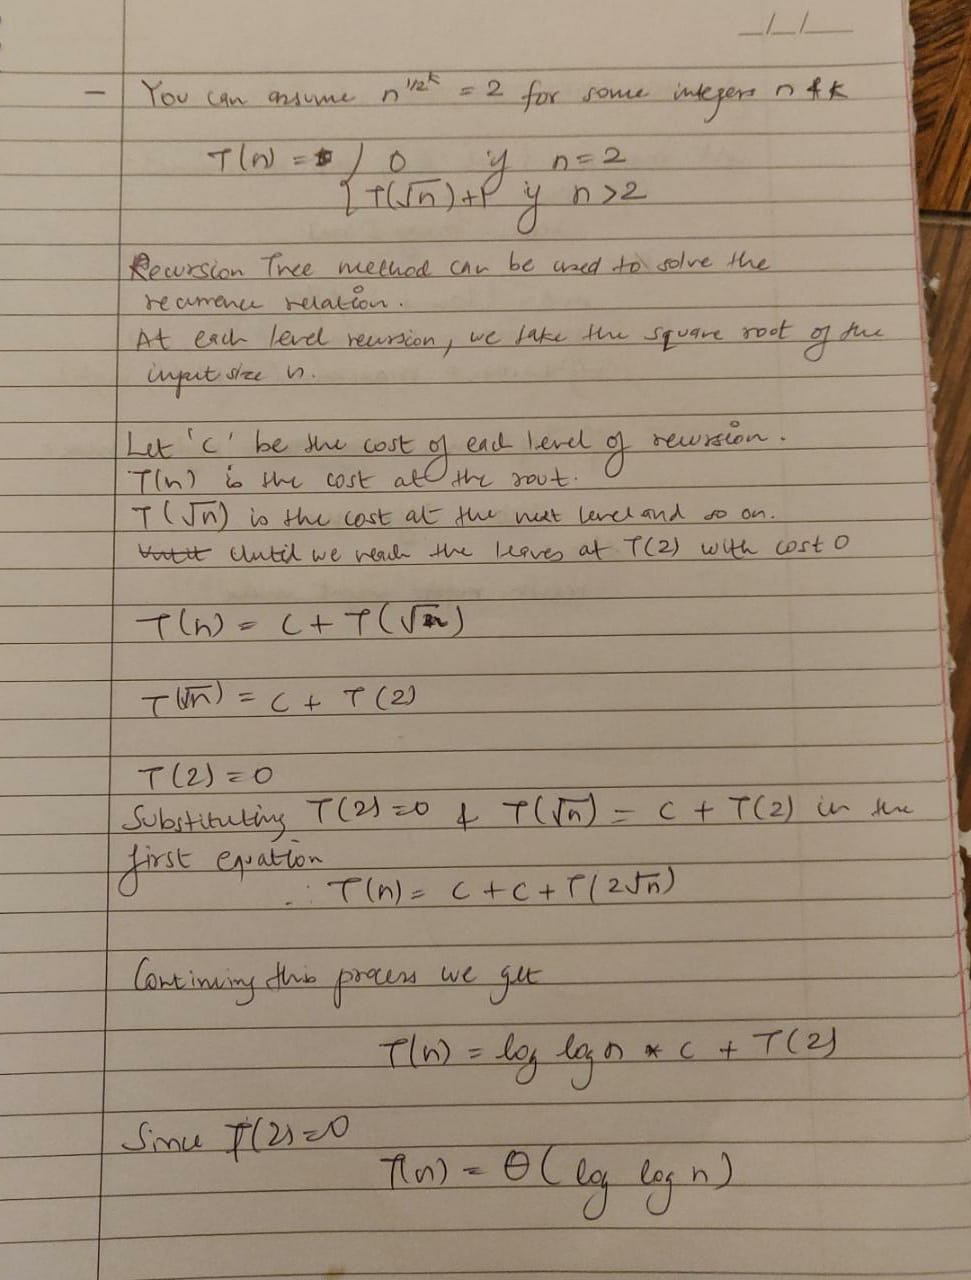 _/_/_
- You can assume n^1/2^k = 2 for some integers n & k
T(n) = { 0 if n=2
{ T(√n)+1 if n>2
Recursion Tree method can be used to solve the
recurrence relation.
At each level recursion, we take the square root of the
input size n.
Let 'c' be the cost of each level of recursion.
T(n) is the cost at the root.
T(√n) is the cost at the next level and so on.
Until we reach the leaves at T(2) with cost 0
T(n) = C + T(√n)
T(√n) = C + T(2)
T(2) = 0
Substituting T(2)=0 & T(√n) = C + T(2) in the
first equation
∴ T(n) = C + C + T(2√n)
Continuing this process we get
T(n) = log log n * C + T(2)
Since T(2)=0
T(n) = θ(log log n)